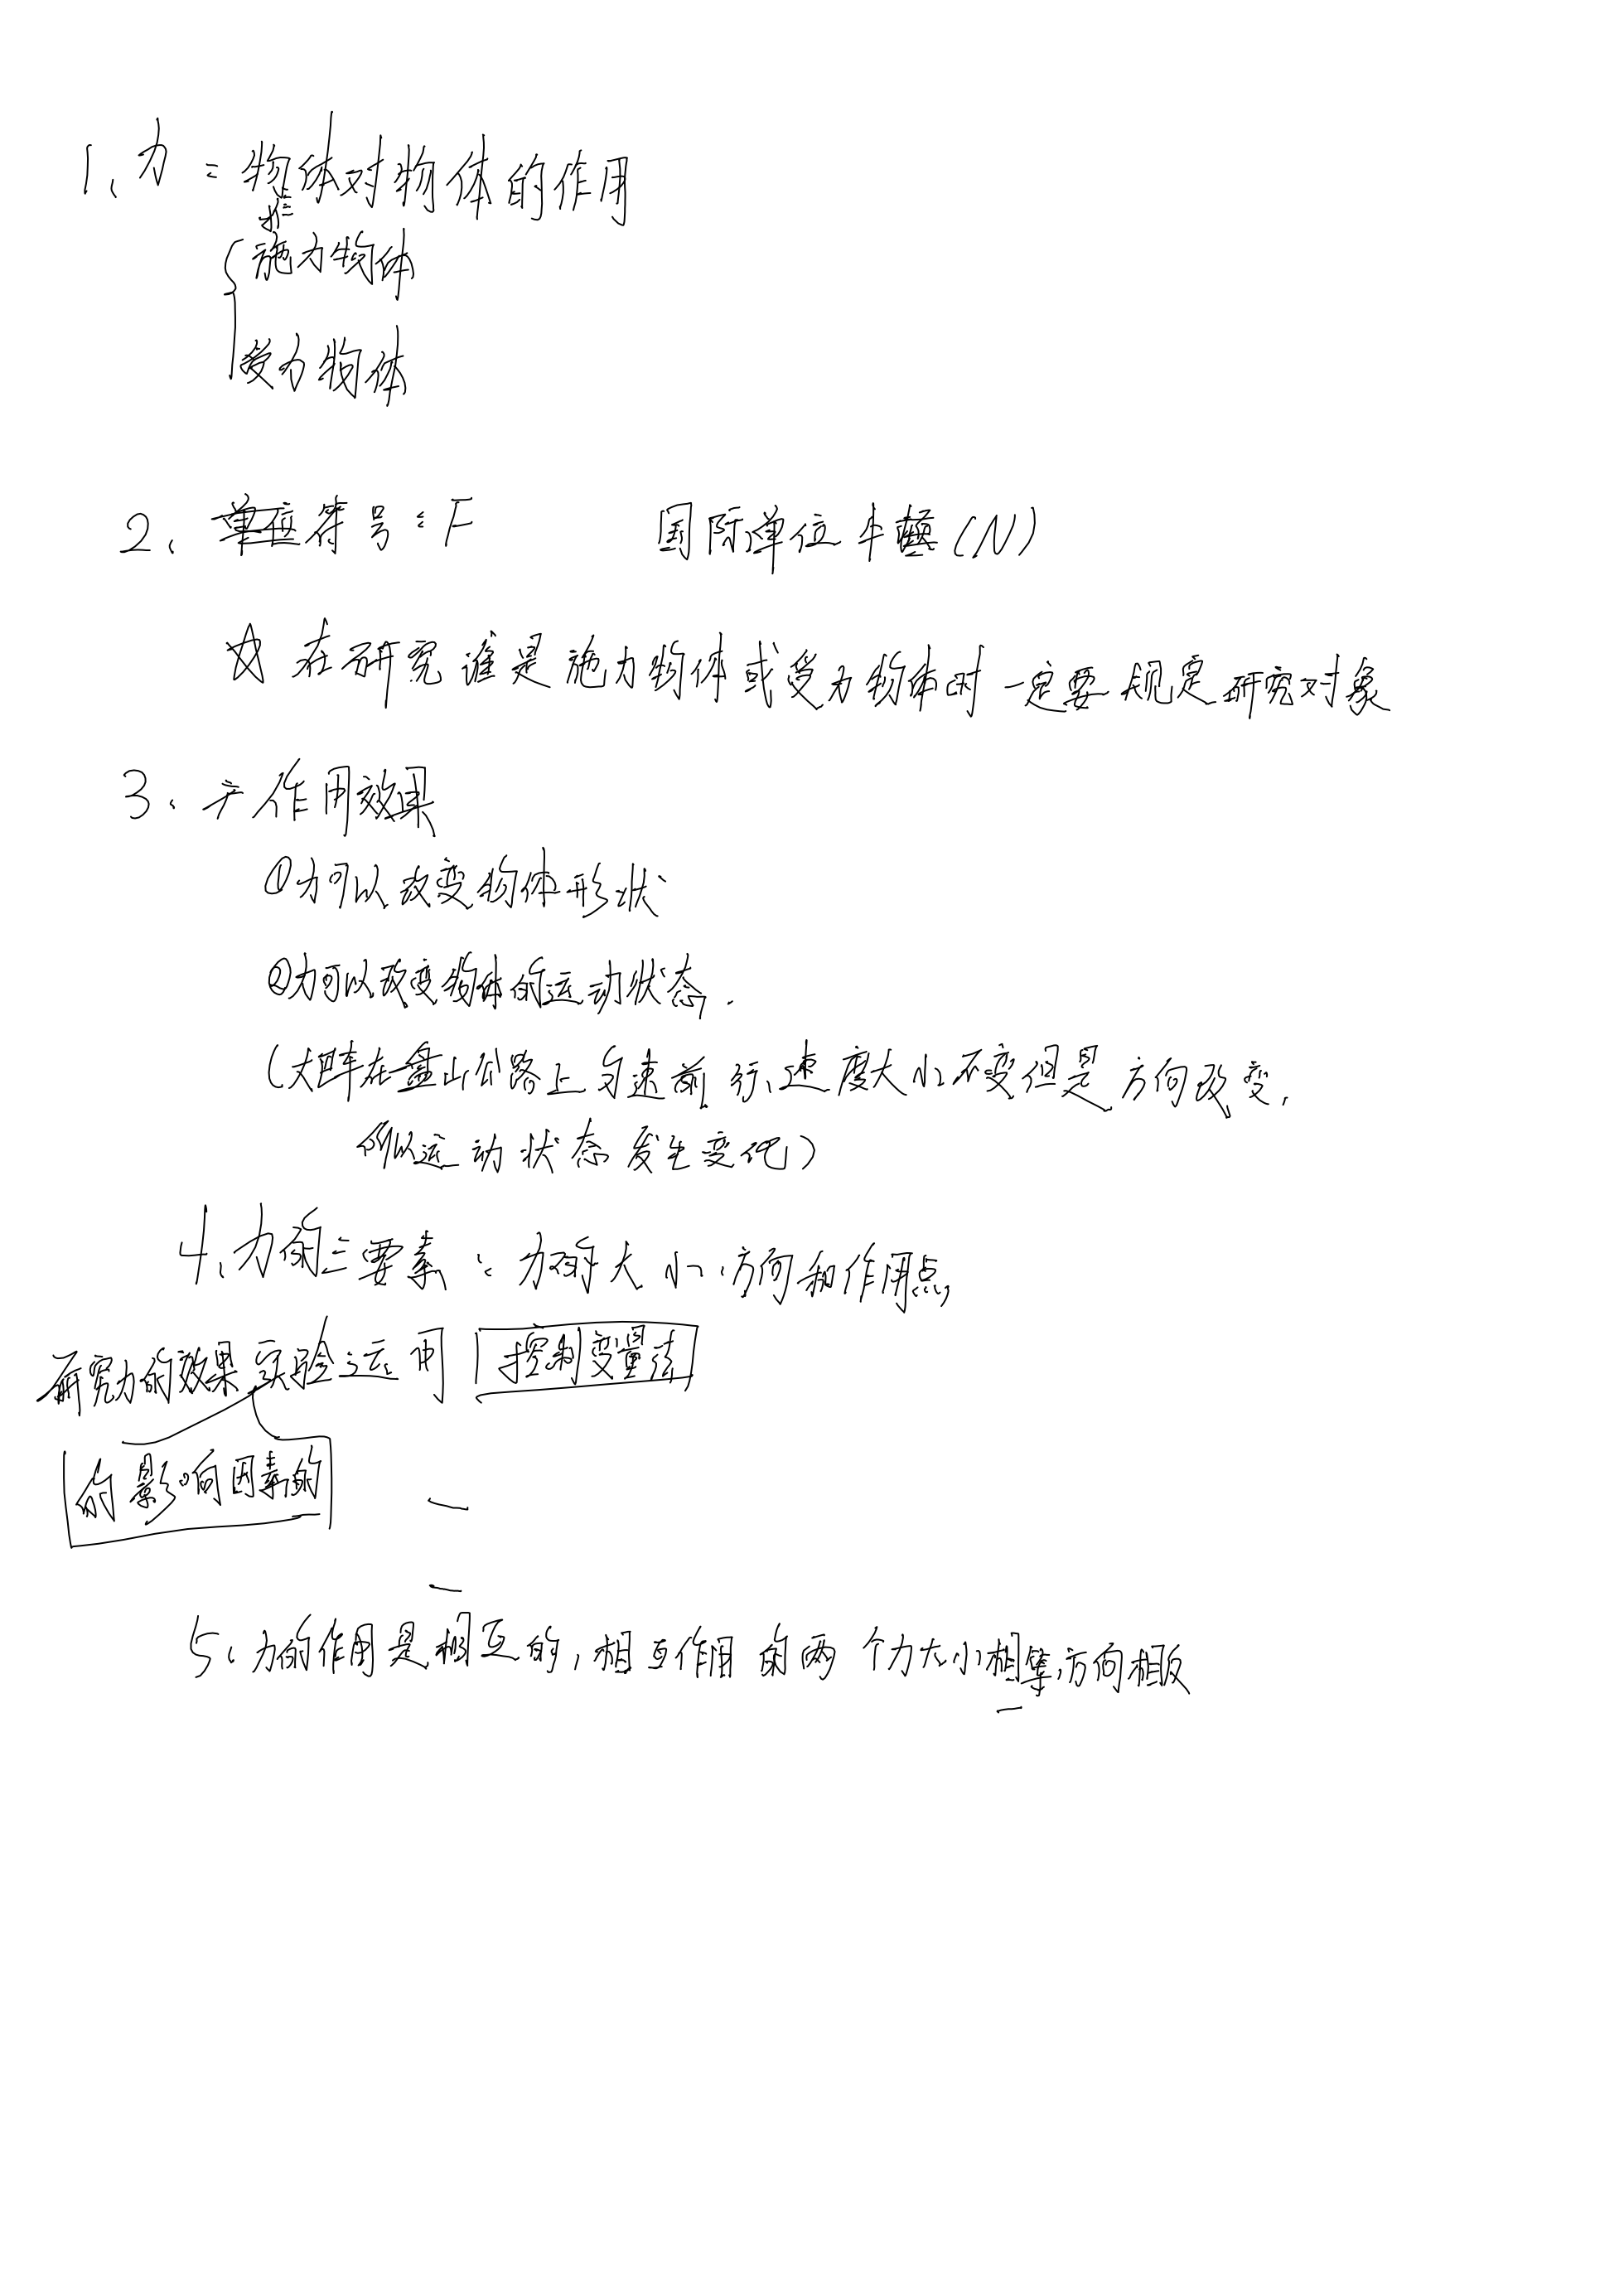 1、力：物体对物体的作用
施力物体
受力物体
2、单位符号：F 国际单位牛顿(N)
☆ 在研究谁是施力物体或受力物体时一定要规定研究对象
3、作用效果
①力可以改变物体形状
②力可以改变物体的运动状态.
(大巴车在盘山公路上匀速前行、速度大小不变但是方向改变,
所以运动状态发生变化)
4、力的三要素：力的大小、方向和作用点,
研究力的效果实验运用 控制变量法
的影响因素的
5、力的作用是相互的,相互作用的两个力大小相等,方向相反